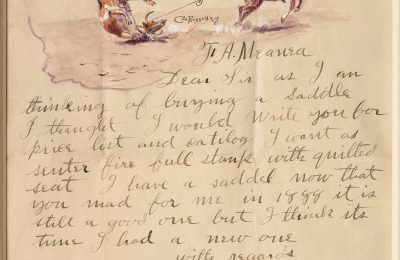 F. A. Meanea
Dear Sir as I am
thinking of buying a saddle
I thought I would Write you for
price list and catilog I want as
senter fire full stank with quilted
seat I have a saddel now that
you mad for me in 1888 it is
still a good one but I think its
time I had a new one
with regards